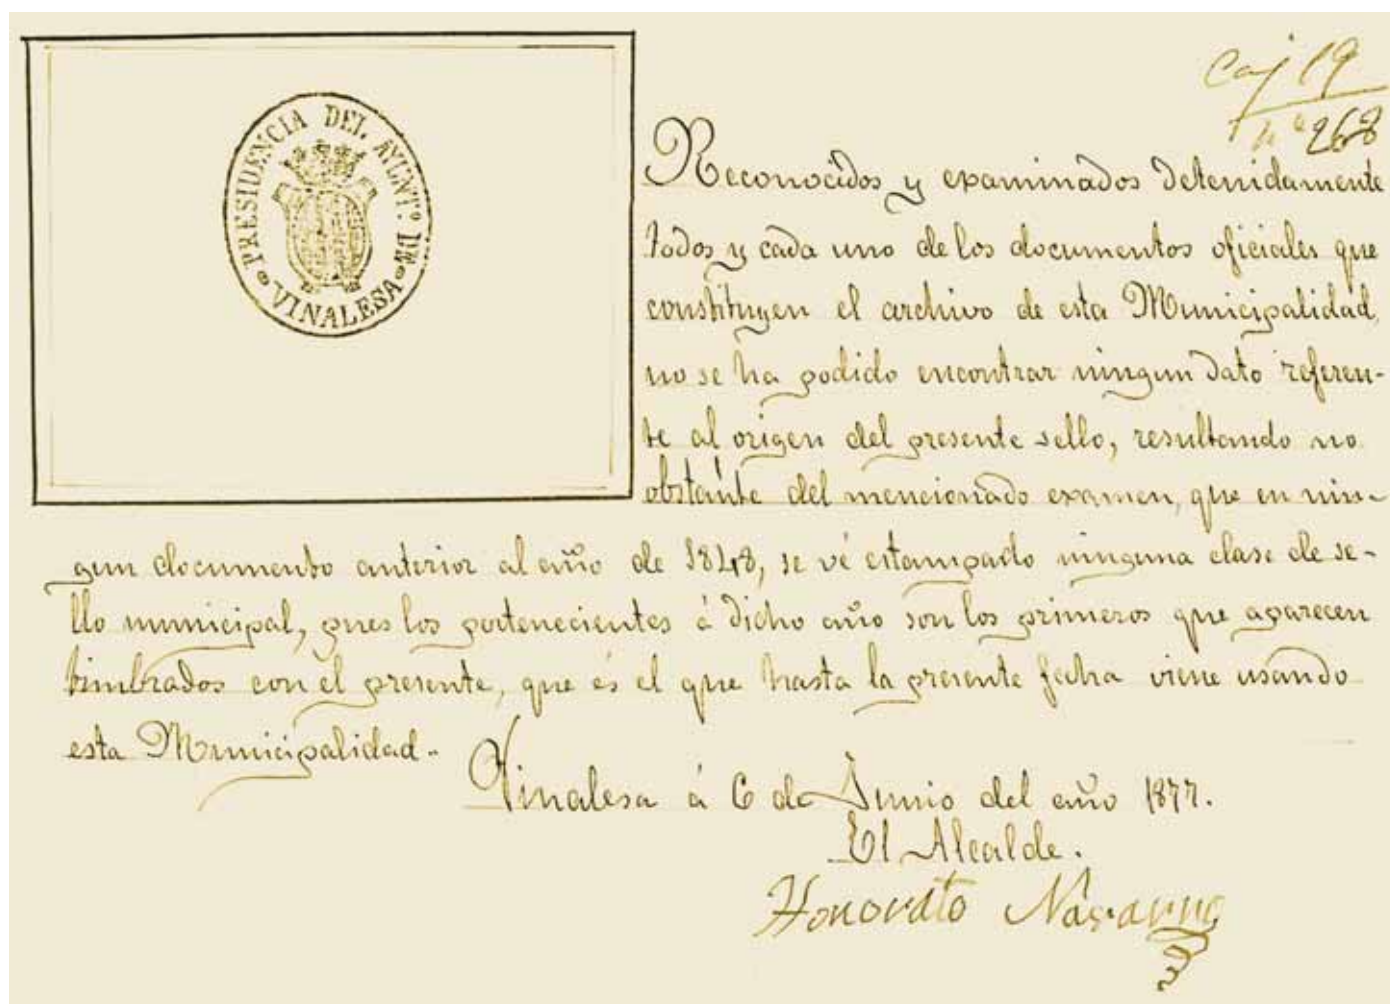 PRESIDENCIA DEL AYUNT.º DE
VINALESA
Caj 19
nº 268
Reconocidos y examinados detenidamente
todos y cada uno de los documentos oficiales que
constituyen el archivo de esta Municipalidad,
no se ha podido encontrar ningun dato referen-
te al origen del presente sello, resultando no
obstante del mencionado examen, que en nin-
gun documento anterior al año de 1848, se vé estampado ninguna clase de se-
llo municipal, pues los pertenecientes á dicho año son los primeros que aparecen
timbrados con el presente, que es el que hasta la presente fecha viene usando
esta Municipalidad.
Vinalesa á 6 de Junio del año 1877.
El Alcalde.
Honorato Navarro